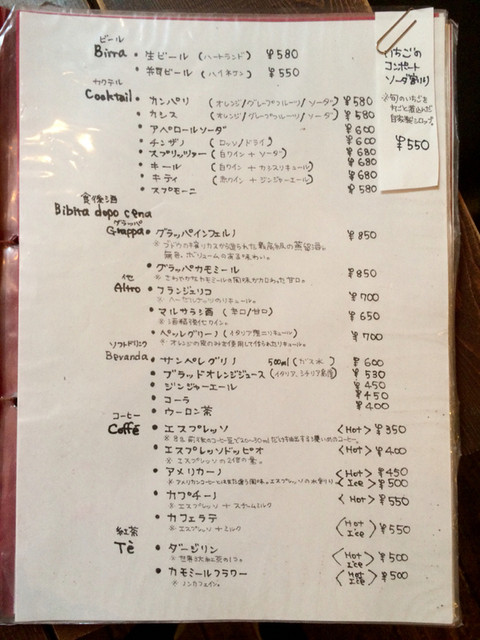 ビール
Birra • 生ビール (ハートランド) ¥580
• 瓶ビール (ハイネケン) ¥550
カクテル
Cocktail • カンパリ (オレンジ/グレープフルーツ/ソーダ) ¥580
• カシス (オレンジ/グレープフルーツ/ソーダ) ¥580
• アペロールソーダ ¥600
• チンザノ (ロッソ/ドライ) ¥600
• スプリッツァー (白ワイン + ソーダ) ¥680
• キール (白ワイン + カシスリキュール) ¥680
• キティ (赤ワイン + ジンジャーエール) ¥680
• スプモーニ ¥580
いちごの
コンポート
ソーダ割り
※旬のいちごを
自家製シロップ
¥550
食後酒
Bibita dopo cena
グラッパ
Grappa • グラッパインフェルノ ¥850
※ブドウの搾りカスから造られた最高級の蒸留酒。
無骨、ボリュームのある味わい。
• グラッパカモミール ¥850
※さわやかなカモミールの風味がカロわった甘口。
他
Altro • フランジェリコ ¥700
※ヘーゼルナッツのリキュール。
• マルサラ酒 (辛口/甘口) ¥650
※酒精強化ワイン。
• ペッレグリーノ (イタリア産ミリキュール) ¥700
※オレンジの皮のみを使用して作られたリキュール。
ソフトドリンク
Bevanda • サンペレグリノ 500ml (ガス水) ¥600
• ブラッドオレンジジュース (イタリア、シチリア島産) ¥530
• ジンジャーエール ¥450
• コーラ ¥450
• ウーロン茶 ¥400
コーヒー
Caffé • エスプレッソ <Hot> ¥350
• エスプレッソドッピオ <Hot> ¥400
※エスプレッソの2倍の量。
• アメリカーノ <Hot> ¥450
※アメリカンコーヒーとはまた違う風味。エスプレッソの水割り <Ice> ¥500
• カプチーノ <Hot> ¥550
※エスプレッソ + スチームミルク
• カフェラテ <Hot Ice> ¥550
※エスプレッソ + ミルク
紅茶
Tè • ダージリン <Hot Ice> ¥500
※世界3大紅茶の1つ。
• カモミールフラワー <Hot Ice> ¥500
※ノンカフェイン。